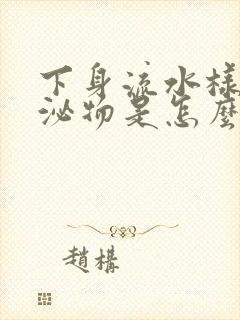 下身流水樣
泌物是怎麼
趙構